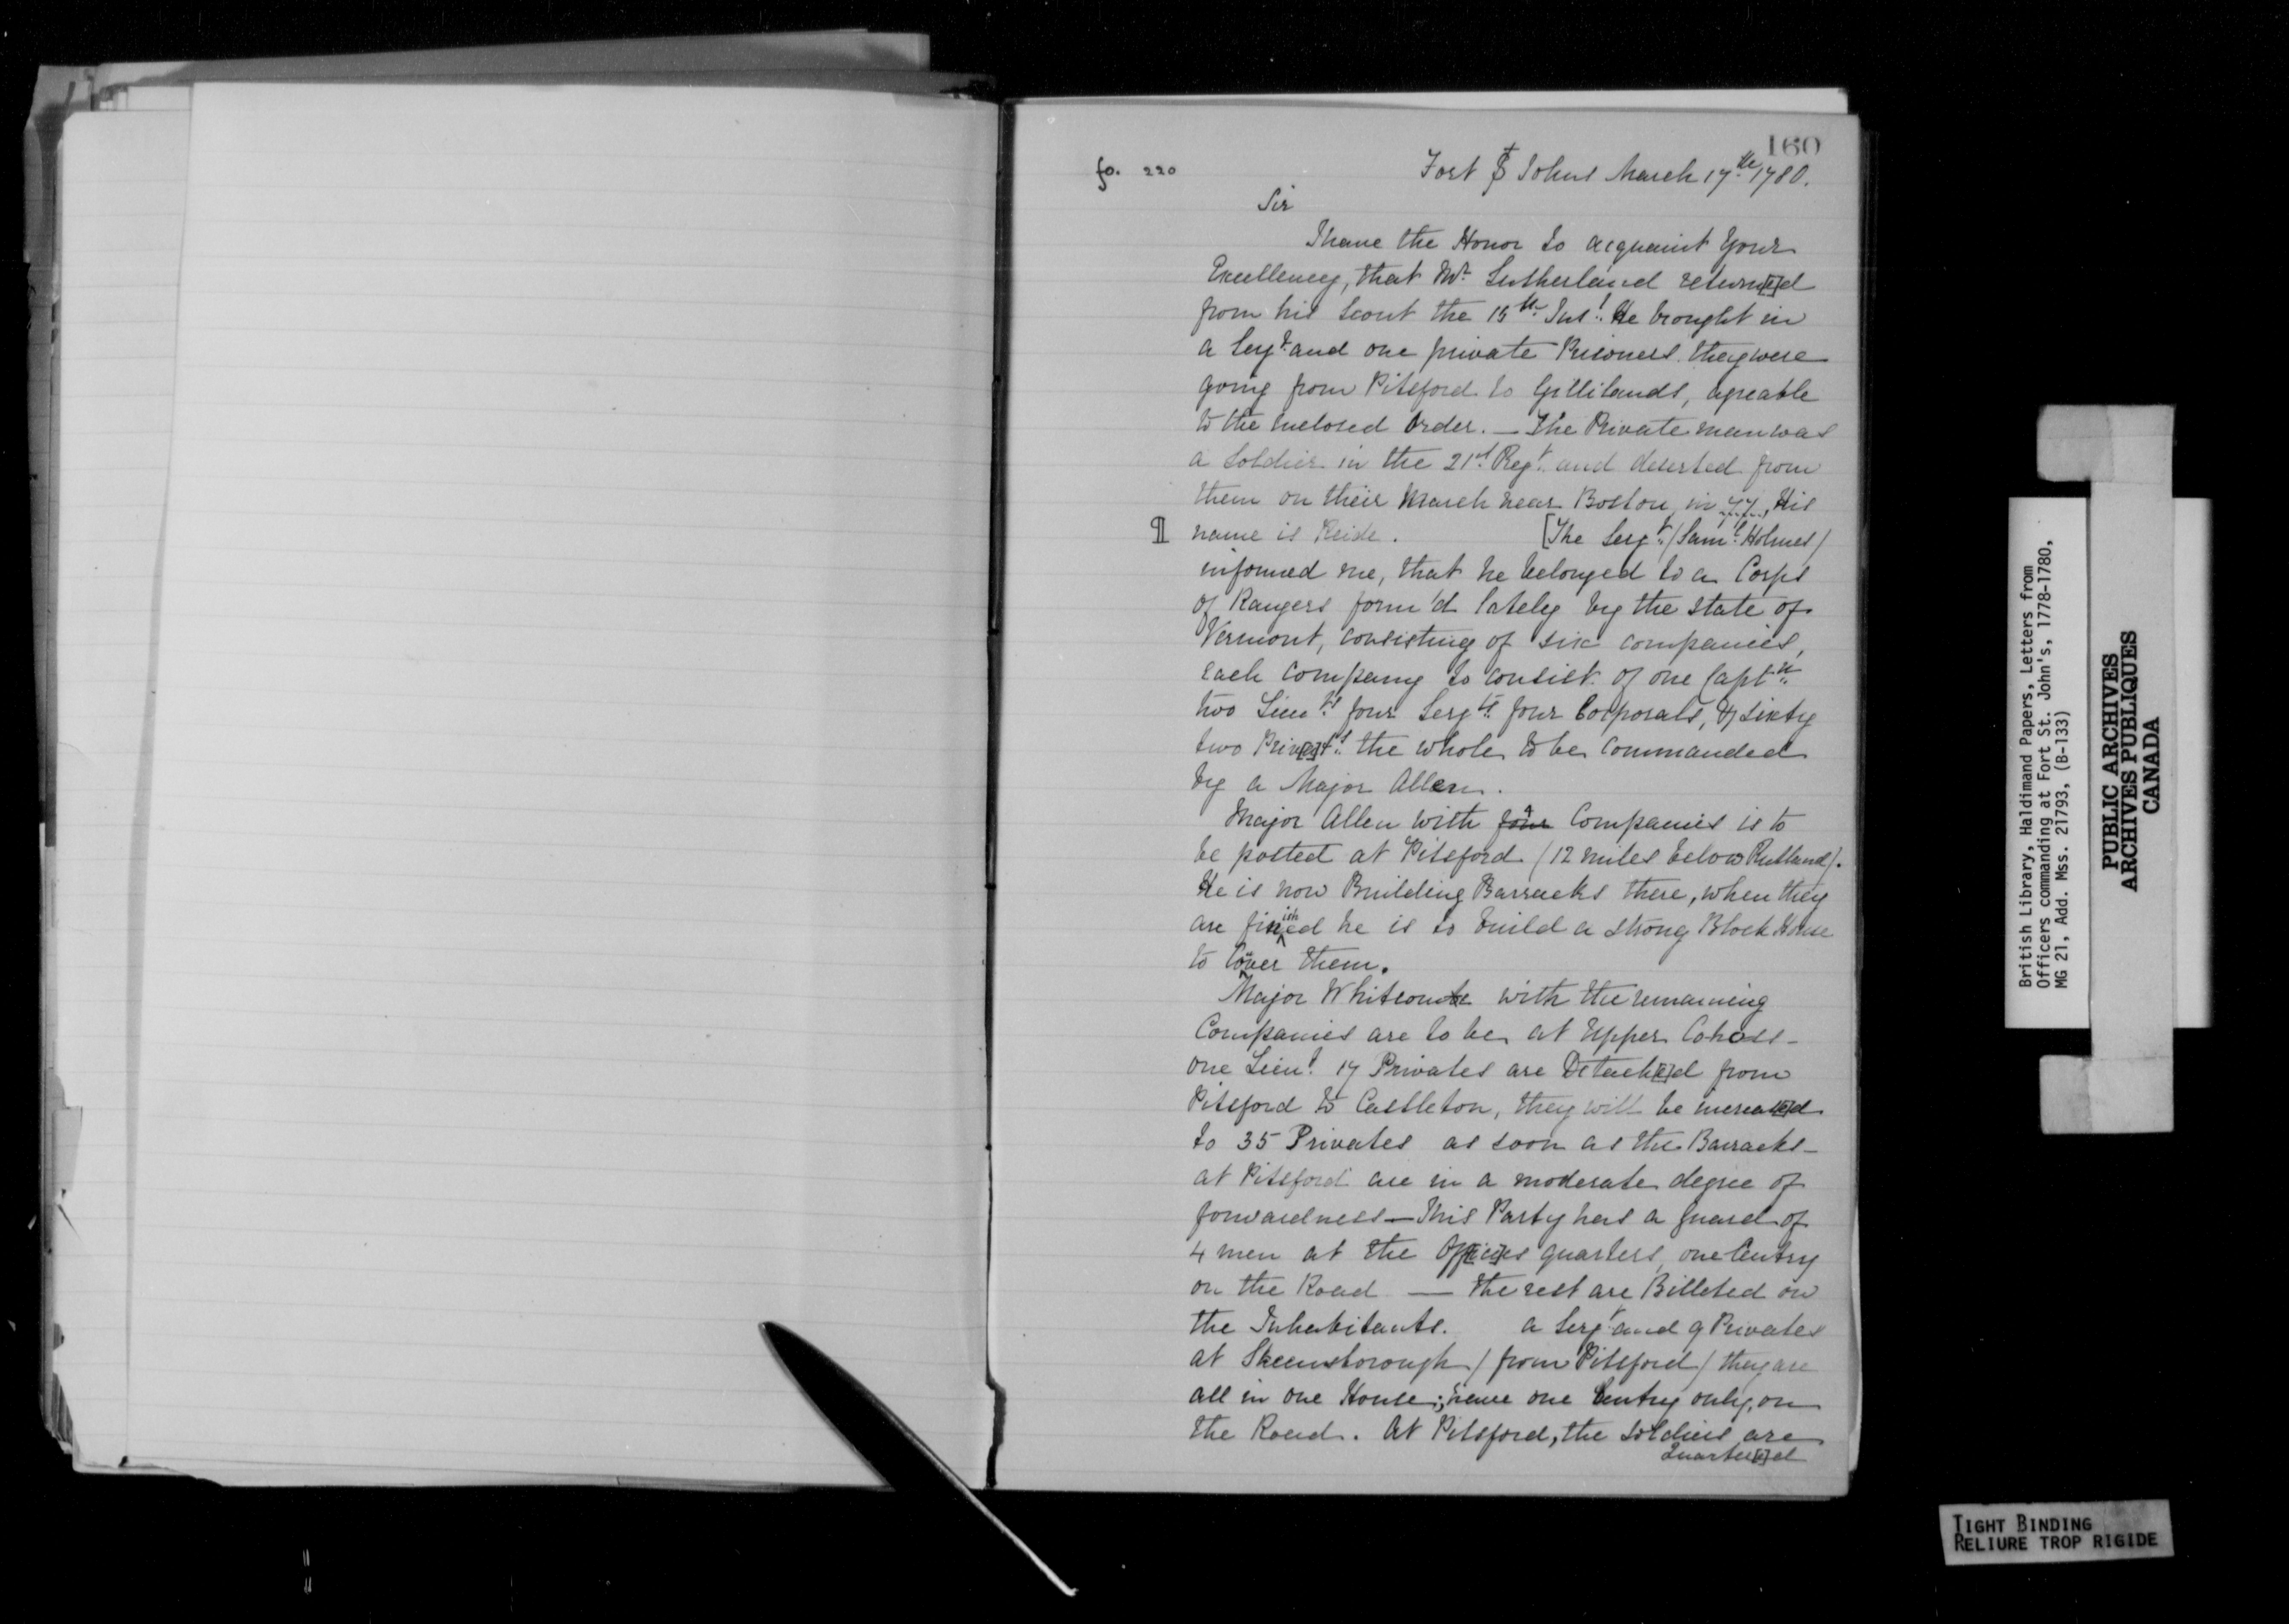 160
fo. 220
Fort St Johns March 17th 1780.
Sir
I have the Honor to acquaint Your
Excellency, that Mr. Sutherland return[e]d
from his Scout the 15th Inst. He brought in
a Sergt. and one private Prisoners. they were
going from Pitsford to Gillilands, agreable
to the Enclosed Order. — The Private man was
a Soldier in the 21st Regt. and deserted from
them on their March near Boston, in 77, His
¶ name is Reide. [The Sergt. / Saml. Holmes /
informed me, that he belonged to a Corps
of Rangers form'd lately by the state of
Vermont, consisting of six companies,
each company to consist of one Captn.
two Lieuts. four Sergts. four Corporals, & sixty
two Priv[a]ts. the whole to be commanded
by a Major Allen.
Major Allen with four 4 Companies is to
be posted at Pitsford (12 miles below Rutland).
He is now Building Barracks there, when they
are finished he is to build a strong Block House
to Cover them.
Major Whitcomb with the remaining
Companies are to be at Upper Cohoss -
one Lieut. 17 Privates are Detach[e]d from
Pitsford to Castleton, they will be increas[e]d
to 35 Privates as soon as the Barracks -
at Pitsford are in a moderate degree of
forwardness — This Party has a guard of
4 men at the Off[ice]rs quarters, one Centry
on the Road — the rest are Billeted on
the Inhabitants. a Sergt. and 9 Privates
at Skeensborough / from Pitsford / they are
all in one House; have one Centry only, on
the Road. At Pitsford, the soldiers are
Quarter[e]d
British Library, Haldimand Papers, Letters from
Officers commanding at Fort St. John's, 1778-1780,
MG 21, Add. Mss. 21793, (B-133)
PUBLIC ARCHIVES
ARCHIVES PUBLIQUES
CANADA
TIGHT BINDING
RELIURE TROP RIGIDE